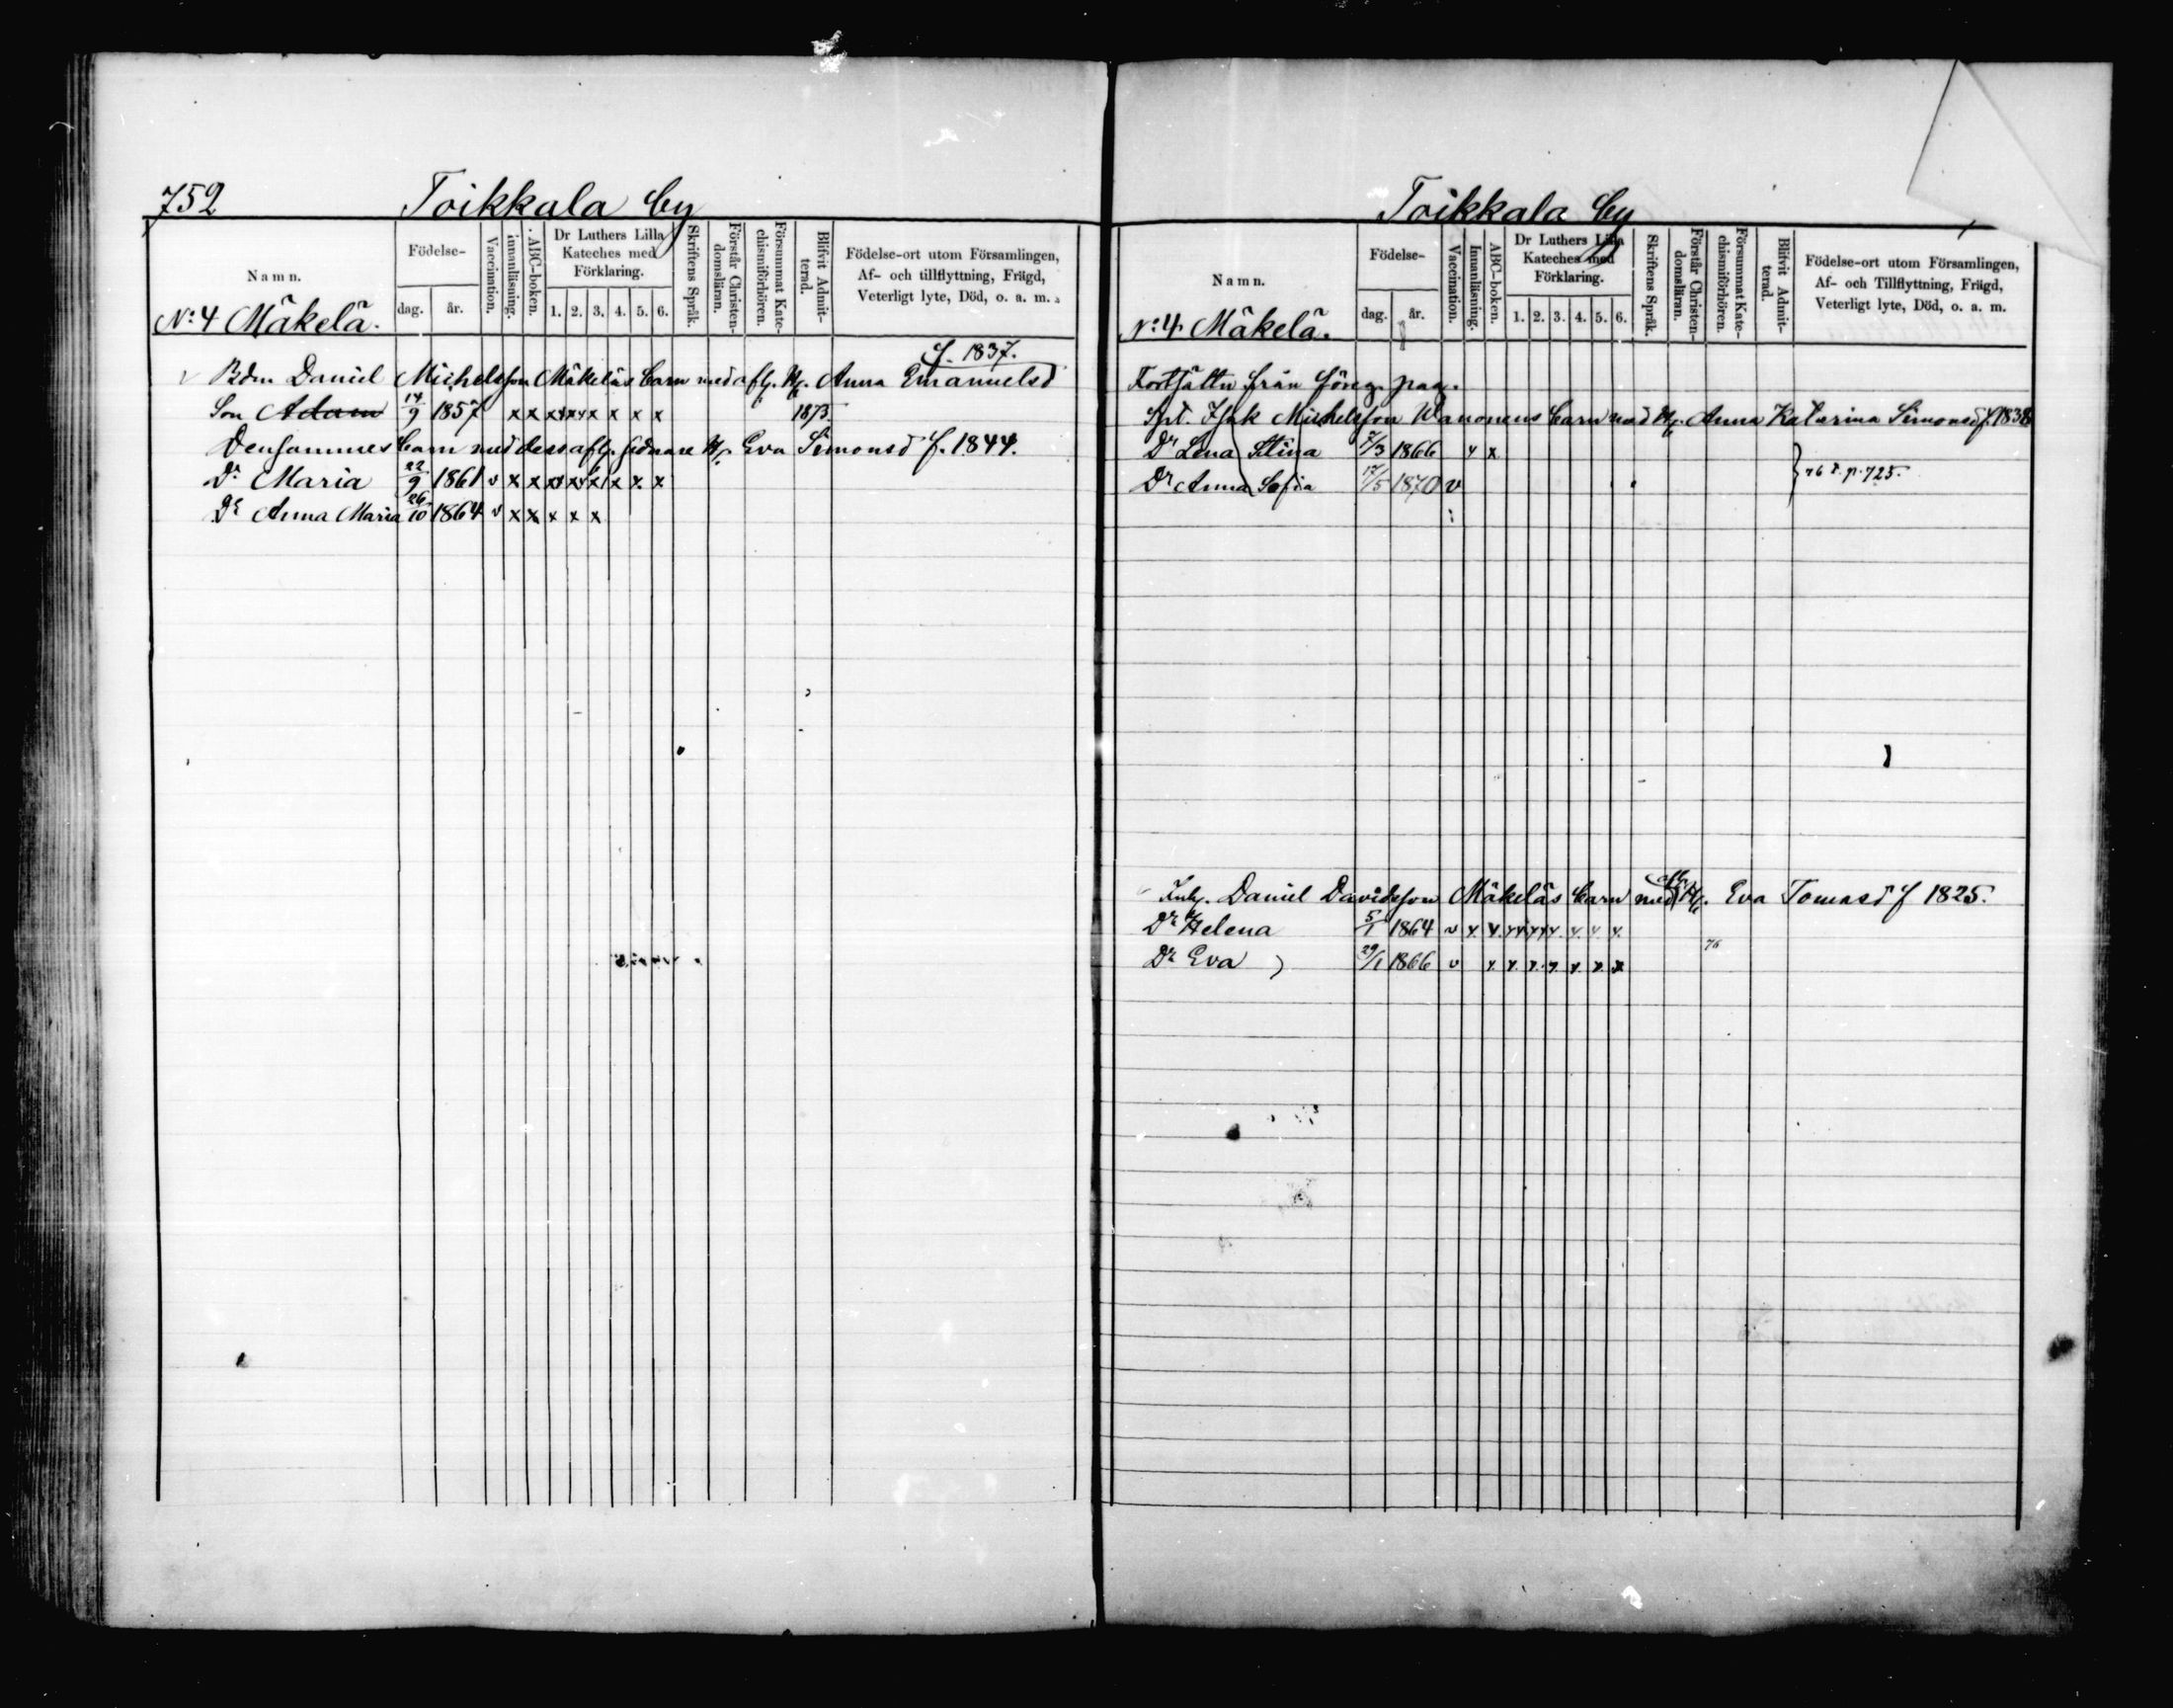 752 Toikkala by
Namn. Födelse- Vaccination. innanläsning. ABC-boken. Dr Luthers Lilla Kateches med Förklaring. Skriftens Språk. Förstår Christen-domsläran. Försummat Kate-chismiförhören. Blifvit Admit-terad. Födelse-ort utom Församlingen, Af- och tillflyttning, Frägd, Veterligt lyte, Död, o. a. m.
dag. år. 1. 2. 3. 4. 5. 6.
No: 4 Mäkelä.
f. 1837.
Bdn Daniel Michelsson Mäkeläs barn med afl. H. Anna Emanuelsd
Son Adam 14/9 1857 x x x x x x x x 1873
Densammes barn med dess afl. sednare H. Eva Simonsd f. 1844.
Dr Maria 22/9 1861 v x x x x x x x x
Dr Anna Maria 26/10 1864 v x x x x x
Toikkala by
Namn. Födelse- Vaccination. Innanläsning. ABC-boken. Dr Luthers Lilla Kateches med Förklaring. Skriftens Språk. Förstår Christen-domsläran. Försummat Kate-chismiförhören. Blifvit Admit-terad. Födelse-ort utom Församlingen, Af- och Tillflyttning, Frägd, Veterligt lyte, Död, o. a. m.
dag. år. 1. 2. 3. 4. 5. 6.
No: 4 Mäkelä.
Fortsättn från föreg. pag.
Spt. Isak Michelsson Wanonens barn med H. Anna Katarina Simonsd f. 1838
Dr Lena Stina 7/3 1866 x x
Dr Anna Sofia 17/5 1870 v } 76 t. p. 725.
Inh. Daniel Davidsson Mäkeläs barn med afl. H. Eva Tomasd f 1825.
Dr Helena 5/1 1864 v x x x x x x x x
Dr Eva 29/1 1866 v x x x x x x x 76